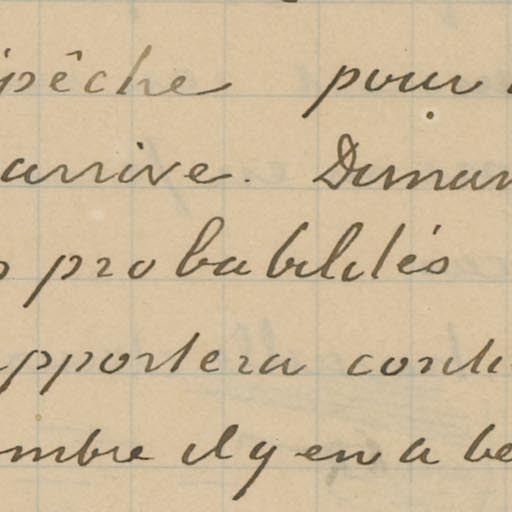 pêche pour
arrive. Diman
probabilités
pportera cont
mbre il y en a be